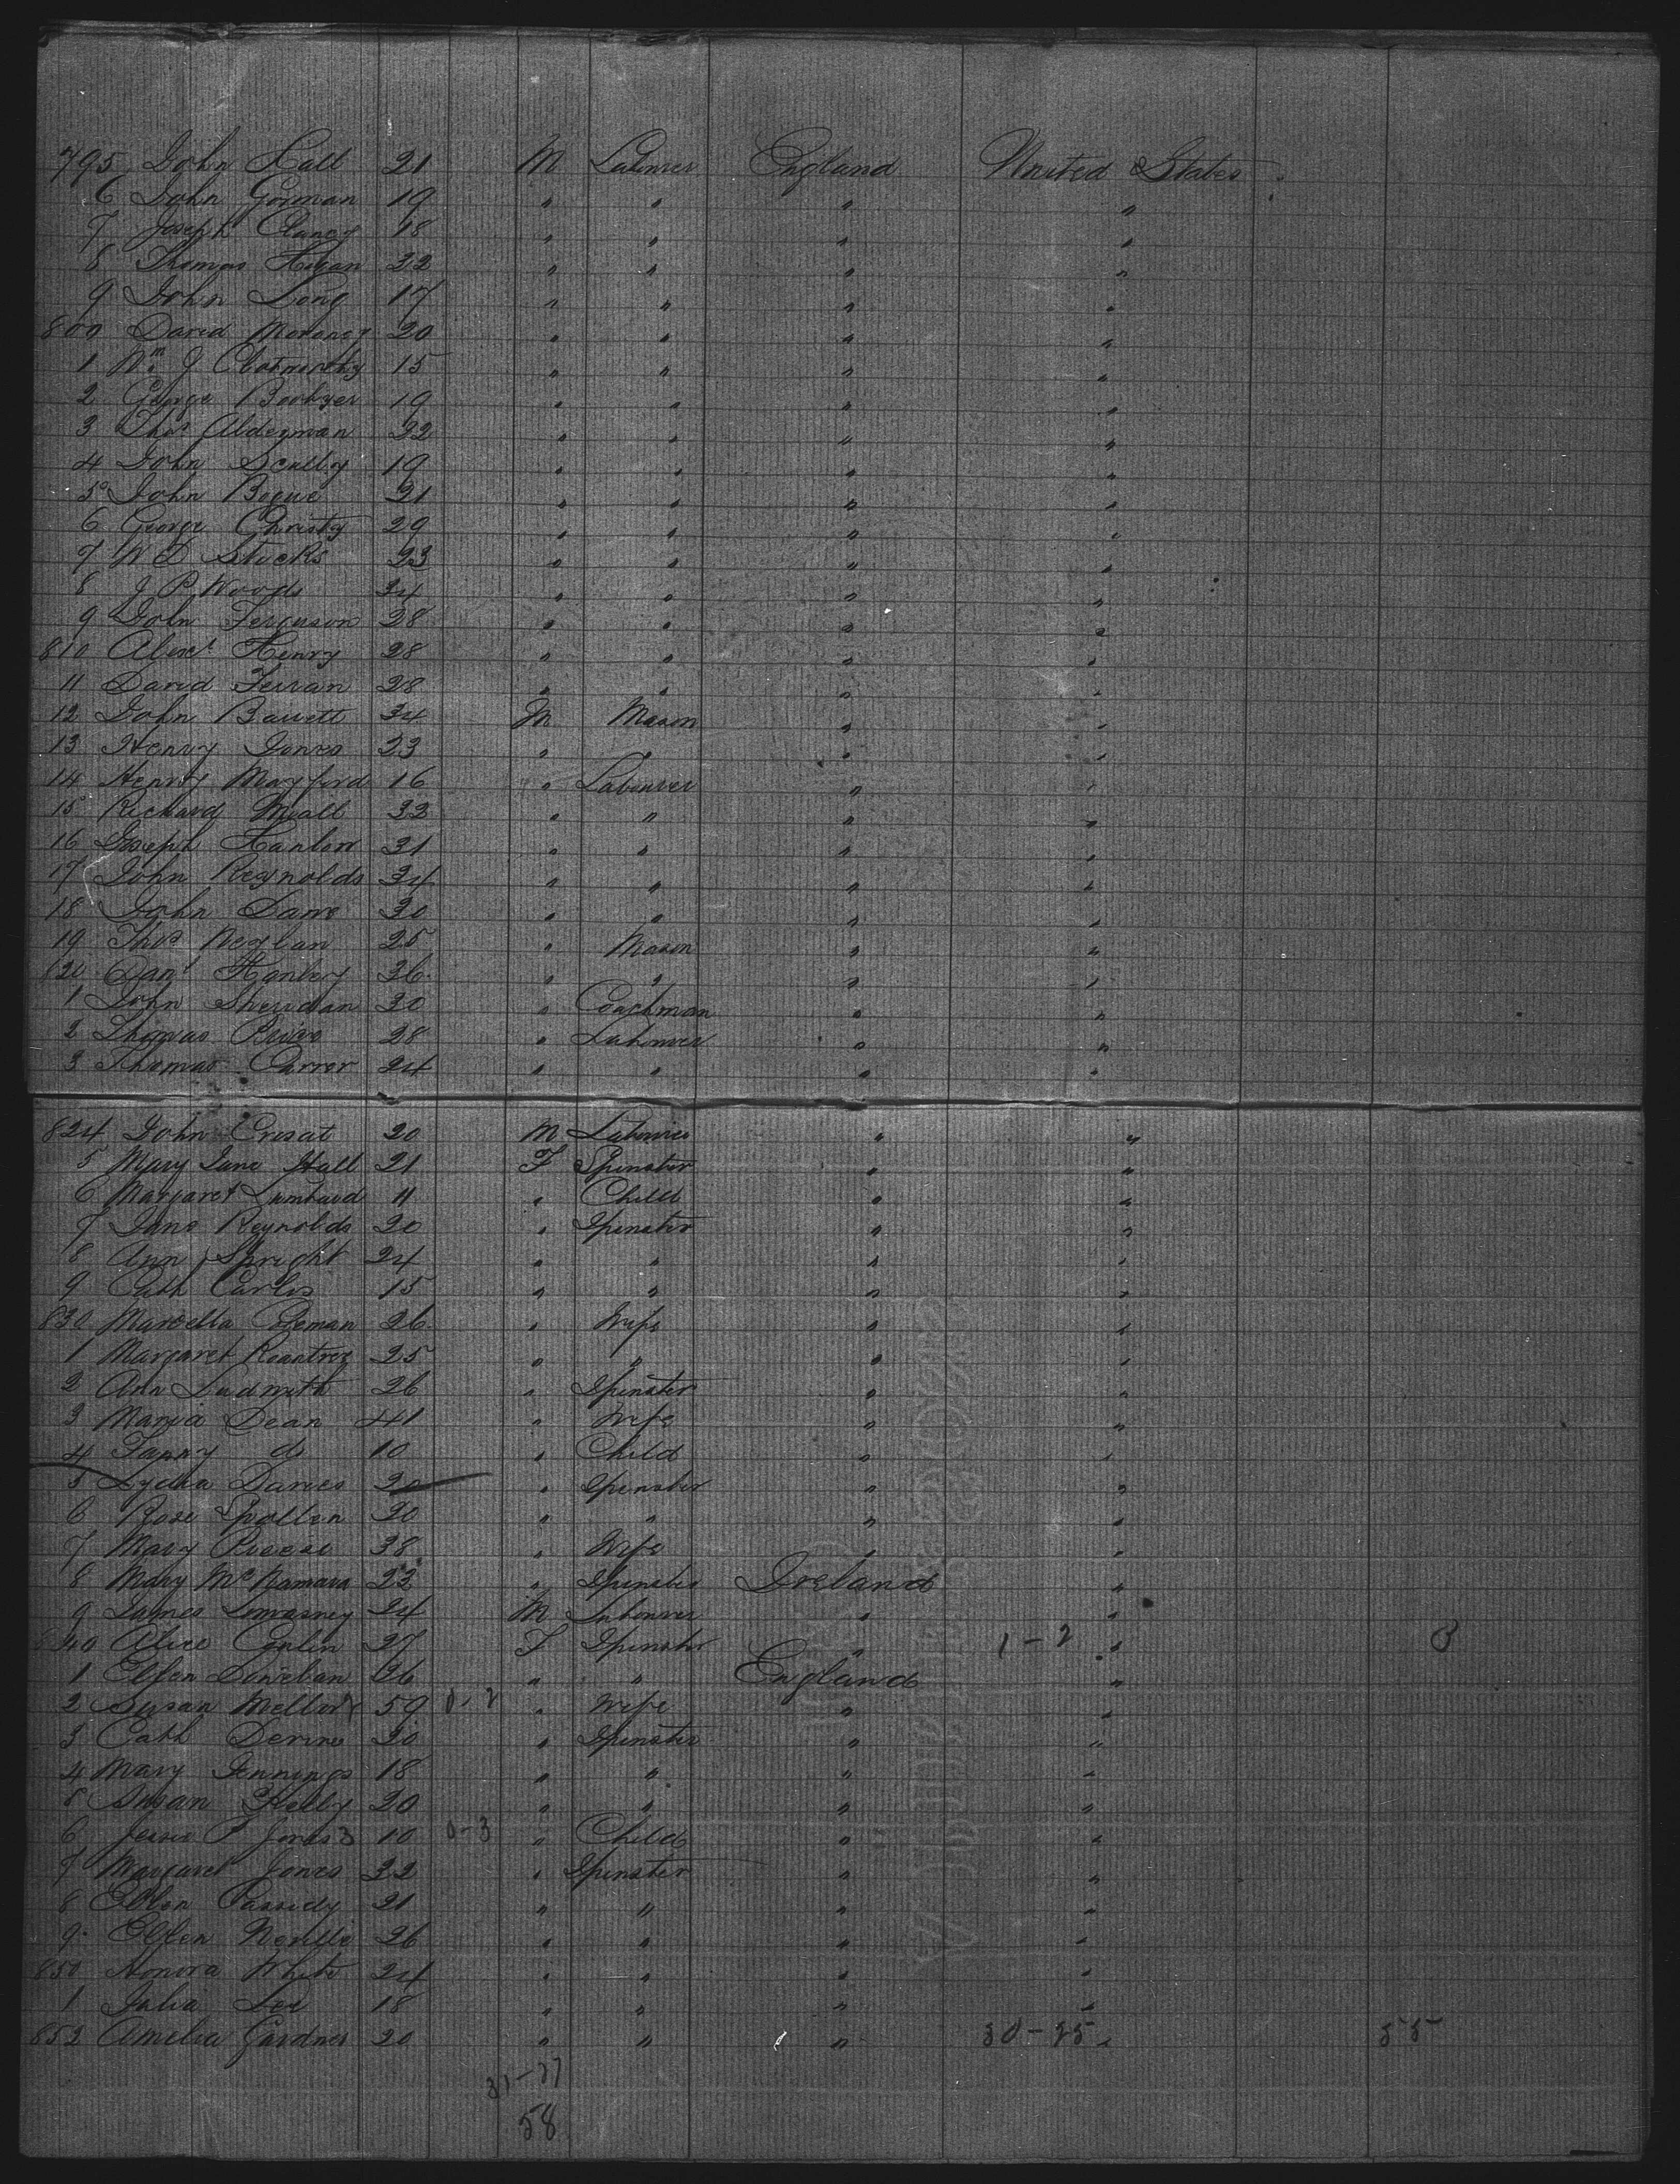 795 John Hall 21 M Labourer England United States
6 John Gorman 19 " " " "
7 Joseph Clancy 18 " " " "
8 Thomas Hogan 22 " " " "
9 John Long 17 " " " "
800 David Moroney 20 " " " "
1 Wm J Clatworthy 15 " " " "
2 George 19 " " " "
3 Thos Alderman 22 " " " "
4 John Scully 19 " " " "
5 John Bogue 21 " " " "
6 George Christy 29 " " " "
7 W D Stocks 23 " " " "
8 J P Woods 34 " " " "
9 John Ferguson 28 " " " "
810 Alexr Henry 28 " " " "
11 David Ferran 28 " " " "
12 John Barrett 34 M Mason " "
13 Henry Jones 23 " " " "
14 Henry Mayford 16 " Labourer " "
15 Richard Miall 32 " " " "
16 Joseph Hanlon 31 " " " "
17 John Reynolds 34 " " " "
18 John 30 " " " "
19 Thos 25 " Mason " "
820 Danl Hanley 36 " " " "
1 John Sheridan 30 " Coachman " "
2 Thomas 28 " Labourer " "
3 Thomas 24 " " " "
824 John 20 M Labourer " "
5 Mary Jane Hall 21 F Spinster " "
6 Margaret Lumbard 11 " Child " "
7 Jane Reynolds 20 " Spinster " "
8 Ann Spright 24 " " " "
9 Cath Carlos 15 " " " "
830 Marcella Coleman 26 " Wife " "
1 Margaret Roantree 25 " " " "
2 Ann Ludwith 26 " Spinster " "
3 Maria Dean 41 " Wife " "
4 Fanny do 10 " Child " "
5 Lydia Davies 20 " Spinster " "
6 Rose Spollen 20 " " " "
7 Mary 38 " Wife " "
8 Mary McNamara 22 " Spinster Ireland "
9 James 24 M Labourer " "
840 Alice Conlin 27 F Spinster " 1-2 " 3
1 Ellen 26 " " England "
2 Susan Mellor 59 0-2 " Wife " "
3 Cath Devine 20 " Spinster " "
4 Mary Jennings 18 " " " "
5 Susan Kelly 20 " " " "
6 Jessie P Jones 10 0-3 " Child " "
7 Margaret Jones 22 " Spinster " "
8 Ellen Cassidy 21 " " " "
9 Ellen 26 " " " "
850 Honora White 24 " " " "
1 Julia Lee 18 " " " "
852 Amelia Gardner 20 " " " 30-25 " 55
31-27
58